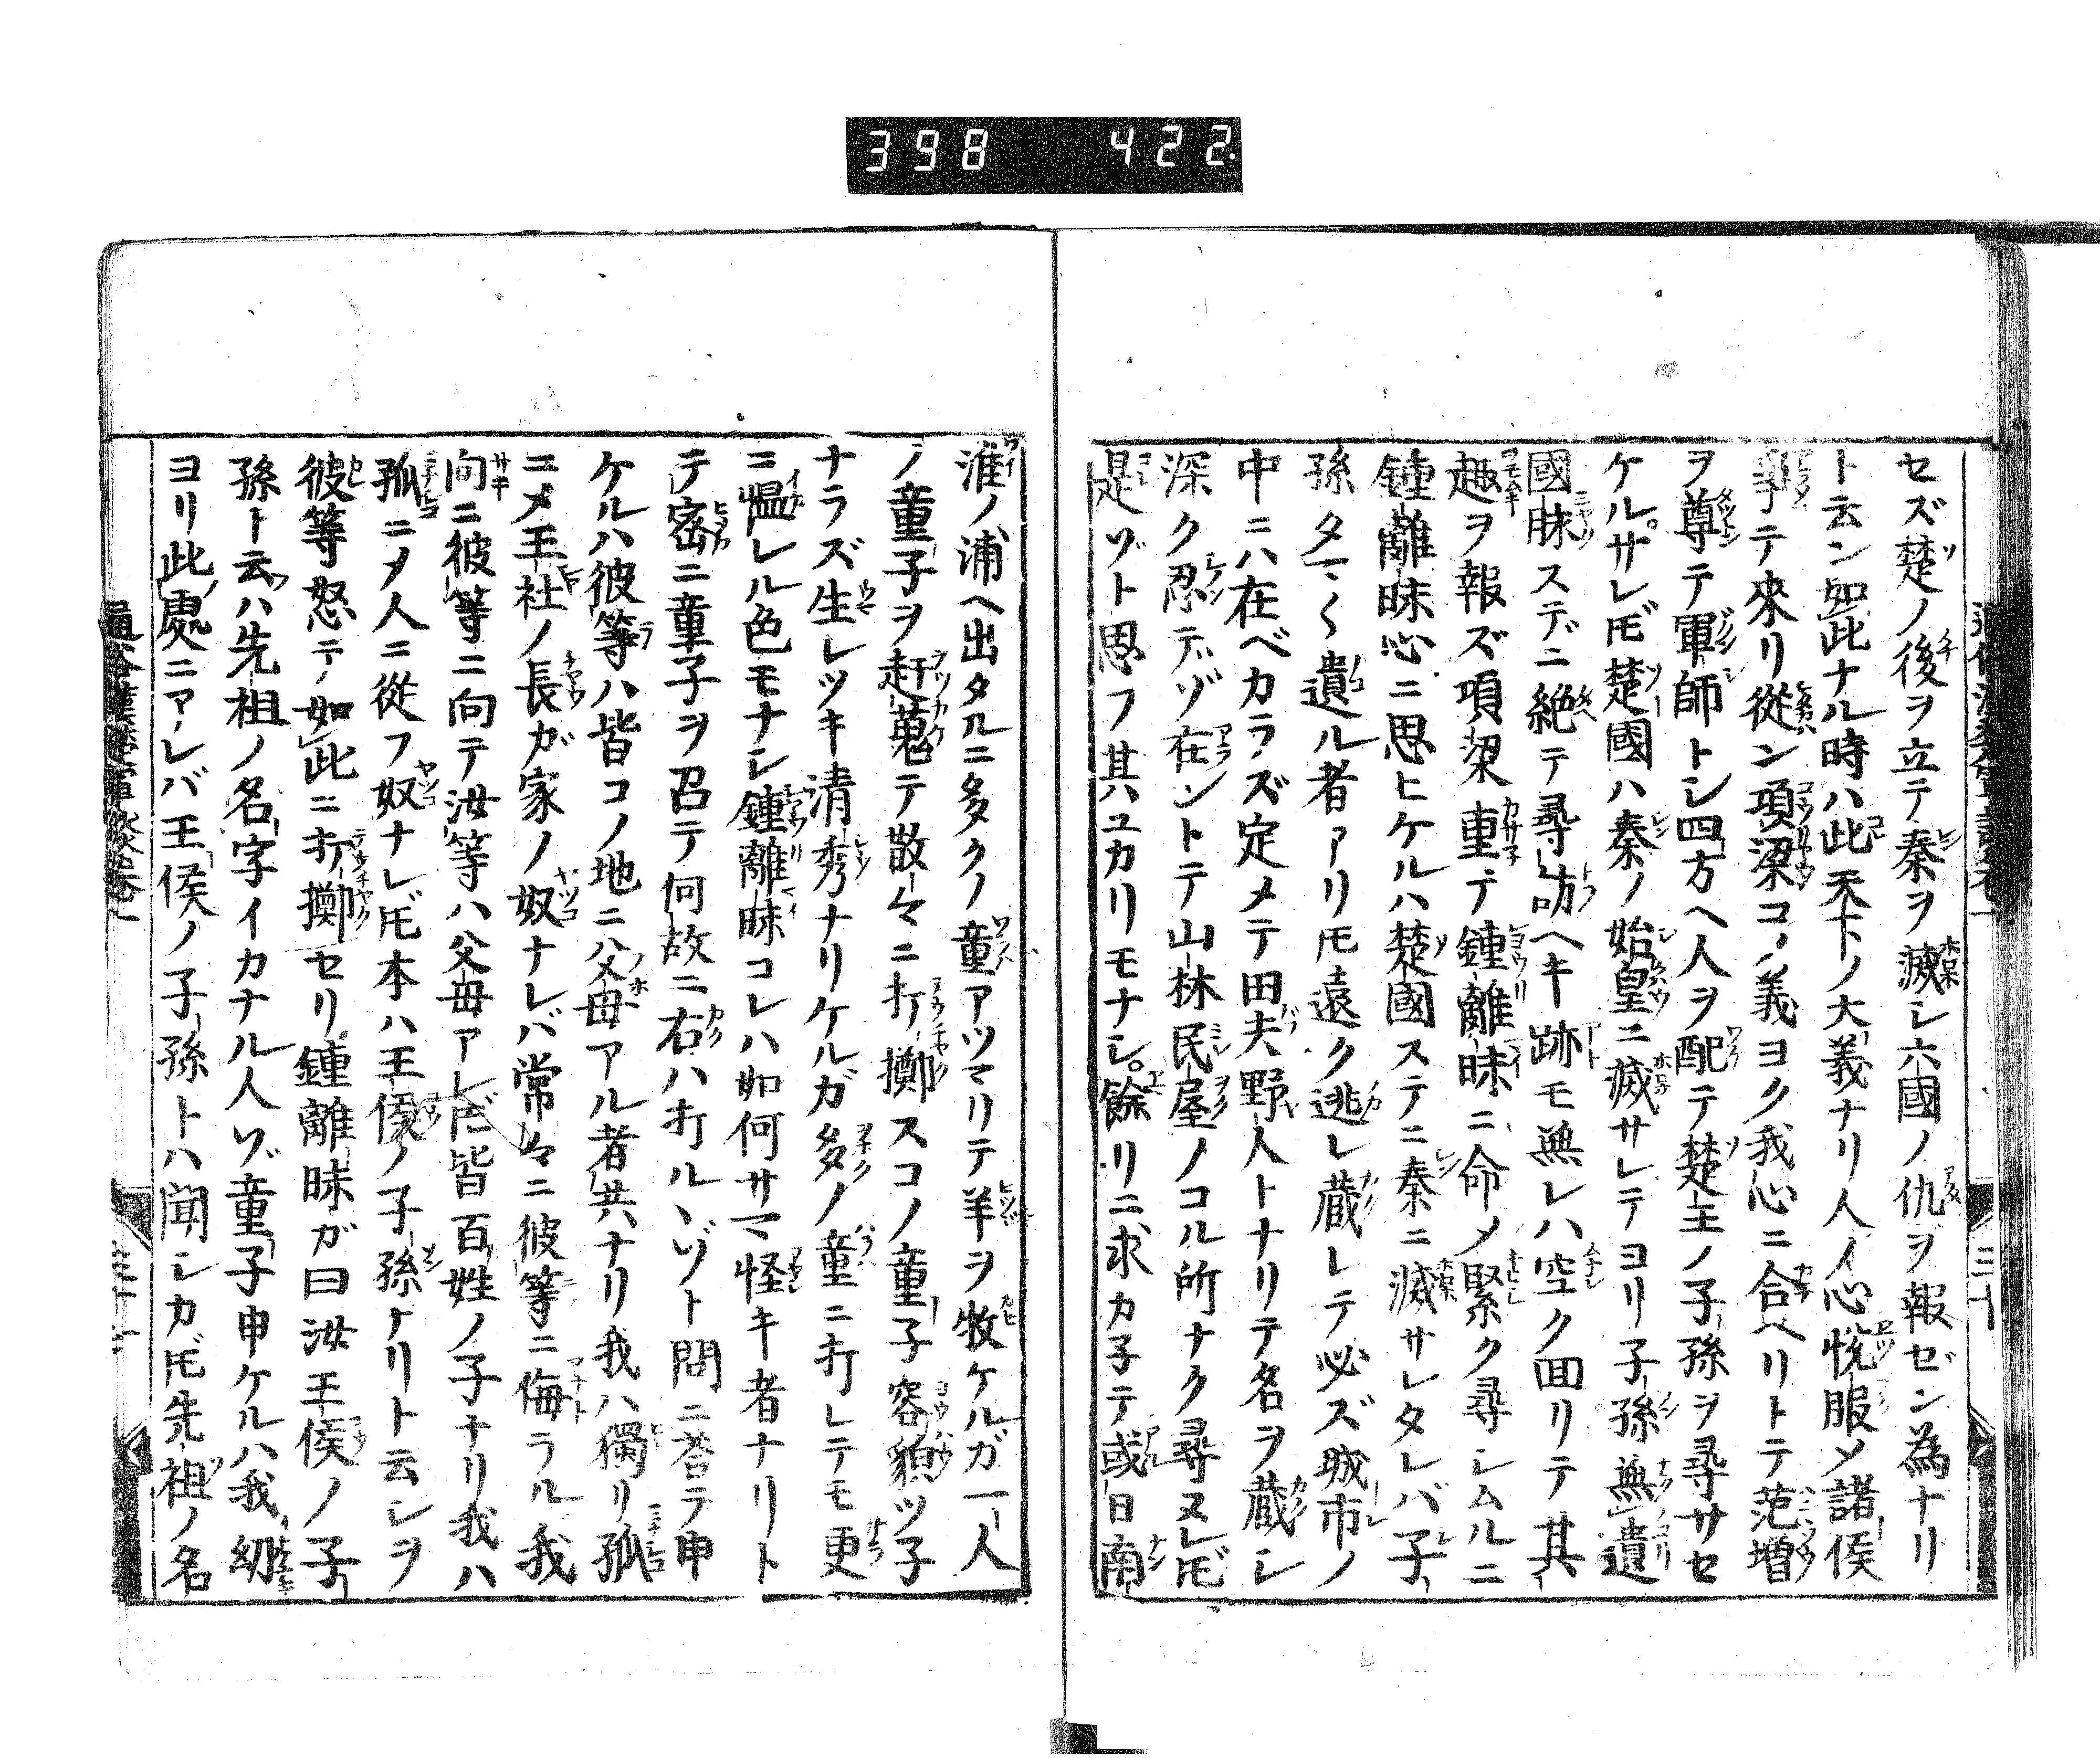 398 422
セズ楚ノ後ヲ立テ秦ヲ滅シ六國ノ仇ヲ報ゼン為ナリ
ト云ン如此ナル時ハ此天下ノ大義ナリ人ノ心悦服メ諸侯
爭テ來リ從ン項梁コノ義ヨク我心ニ合ヘリトテ范増
ヲ尊テ軍師トシ四方ヘ人ヲ配テ楚王ノ子孫ヲ尋サセ
ケル。サレ𪜈楚國ハ秦ノ始皇ニ滅サレテヨリ子孫無遺
國脉ステニ絶テ尋訪ヘキ跡モ無レハ空ク回リテ其
趣ヲ報ズ項梁重テ鍾離昧ニ命メ緊ク尋シムルニ
鍾離昧心ニ思ヒケルハ楚國ステニ秦ニ滅サレタレバ子
孫タマ〱遺ル者アリ𪜈遠ク逃レ蔵レテ必ズ城市ノ
中ニハ在ベカラズ定メテ田夫野人トナリテ名ヲ蔵シ
深ク忍テゾ在ントテ山林民屋ノコル所ナク尋ヌレ𪜈
是ゾト思フ其ハユカリモナシ。餘リニ求カ子テ或日南
淮ノ浦ヘ出タルニ多クノ童アツマリテ羊ヲ牧ケルガ一人
ノ童子ヲ赶蒐テ散々ニ打擲スコノ童子容貌ツ子
ナラズ生レツキ清秀ナリケルガ多ノ童ニ打レテモ更
ニ愠レル色モナシ鍾離昧コレハ如何サマ怪キ者ナリト
テ密ニ童子ヲ召テ何故ニ右ハ打ルヽゾト問ニ荅テ申
ケルハ彼等ハ皆コノ地ニ父母アル者共ナリ我ハ獨リ孤
ニメ王社ノ長ガ家ノ奴ナレバ常々ニ彼等ニ侮ラル我
向ニ彼等ニ向テ汝等ハ父母アレ𪜈皆百姓ノ子ナリ我ハ
孤ニメ人ニ從フ奴ナレ𪜈本ハ王侯ノ子孫ナリト云シヲ
彼等怒テ如此ニ打擲セリ鍾離昧ガ曰汝王侯ノ子
孫ト云ハ先祖ノ名字イカナル人ゾ童子申ケルハ我幼
ヨリ此處ニアレバ王侯ノ子孫トハ聞シカ𪜈先祖ノ名